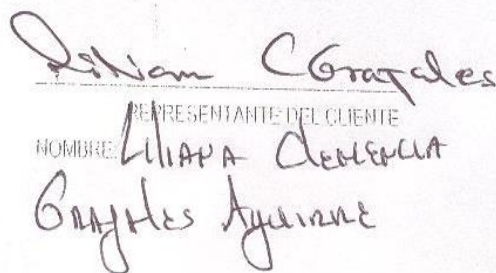 Liliam C Grajales
REPRESENTANTE DEL CLIENTE
NOMBRE: Liliana Clemencia
Grajales Aguirre